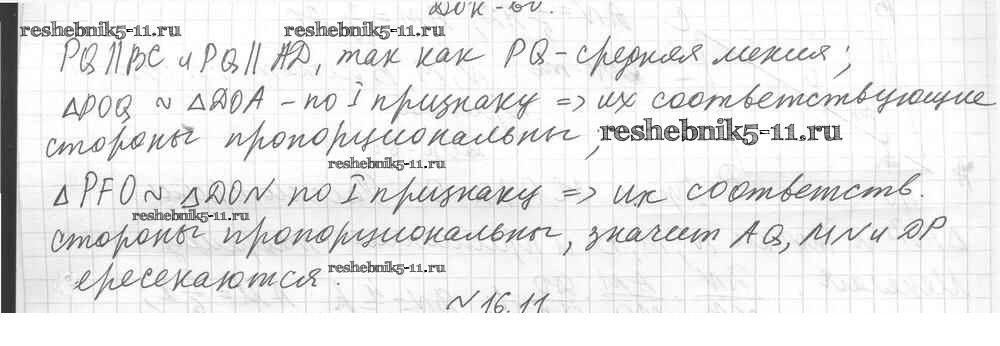 Док-во.
reshebnik5-11.ru reshebnik5-11.ru
PQ||BC и PQ||AD, так как PQ - средняя линия;
△POQ ~ △DOA - по I признаку => их соответствующие
стороны пропорциональны; reshebnik5-11.ru
reshebnik5-11.ru
△PFO ~ △DON по I признаку => их соответств.
reshebnik5-11.ru
стороны пропорциональны, значит AQ, MN и DP
ересекаются. reshebnik5-11.ru
~ 16.11